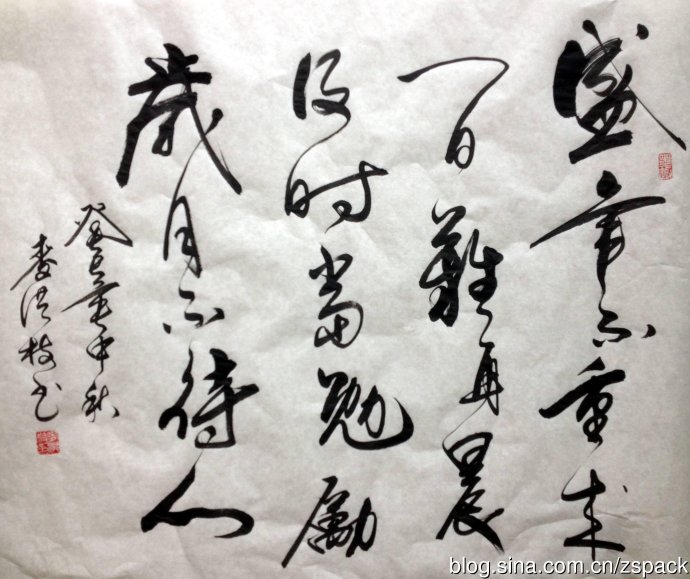 盛年不重来
一日難再晨
及时當勉勵
歲月不待人
癸巳年中秋
李洪枝书
blog.sina.com.cn/zspack